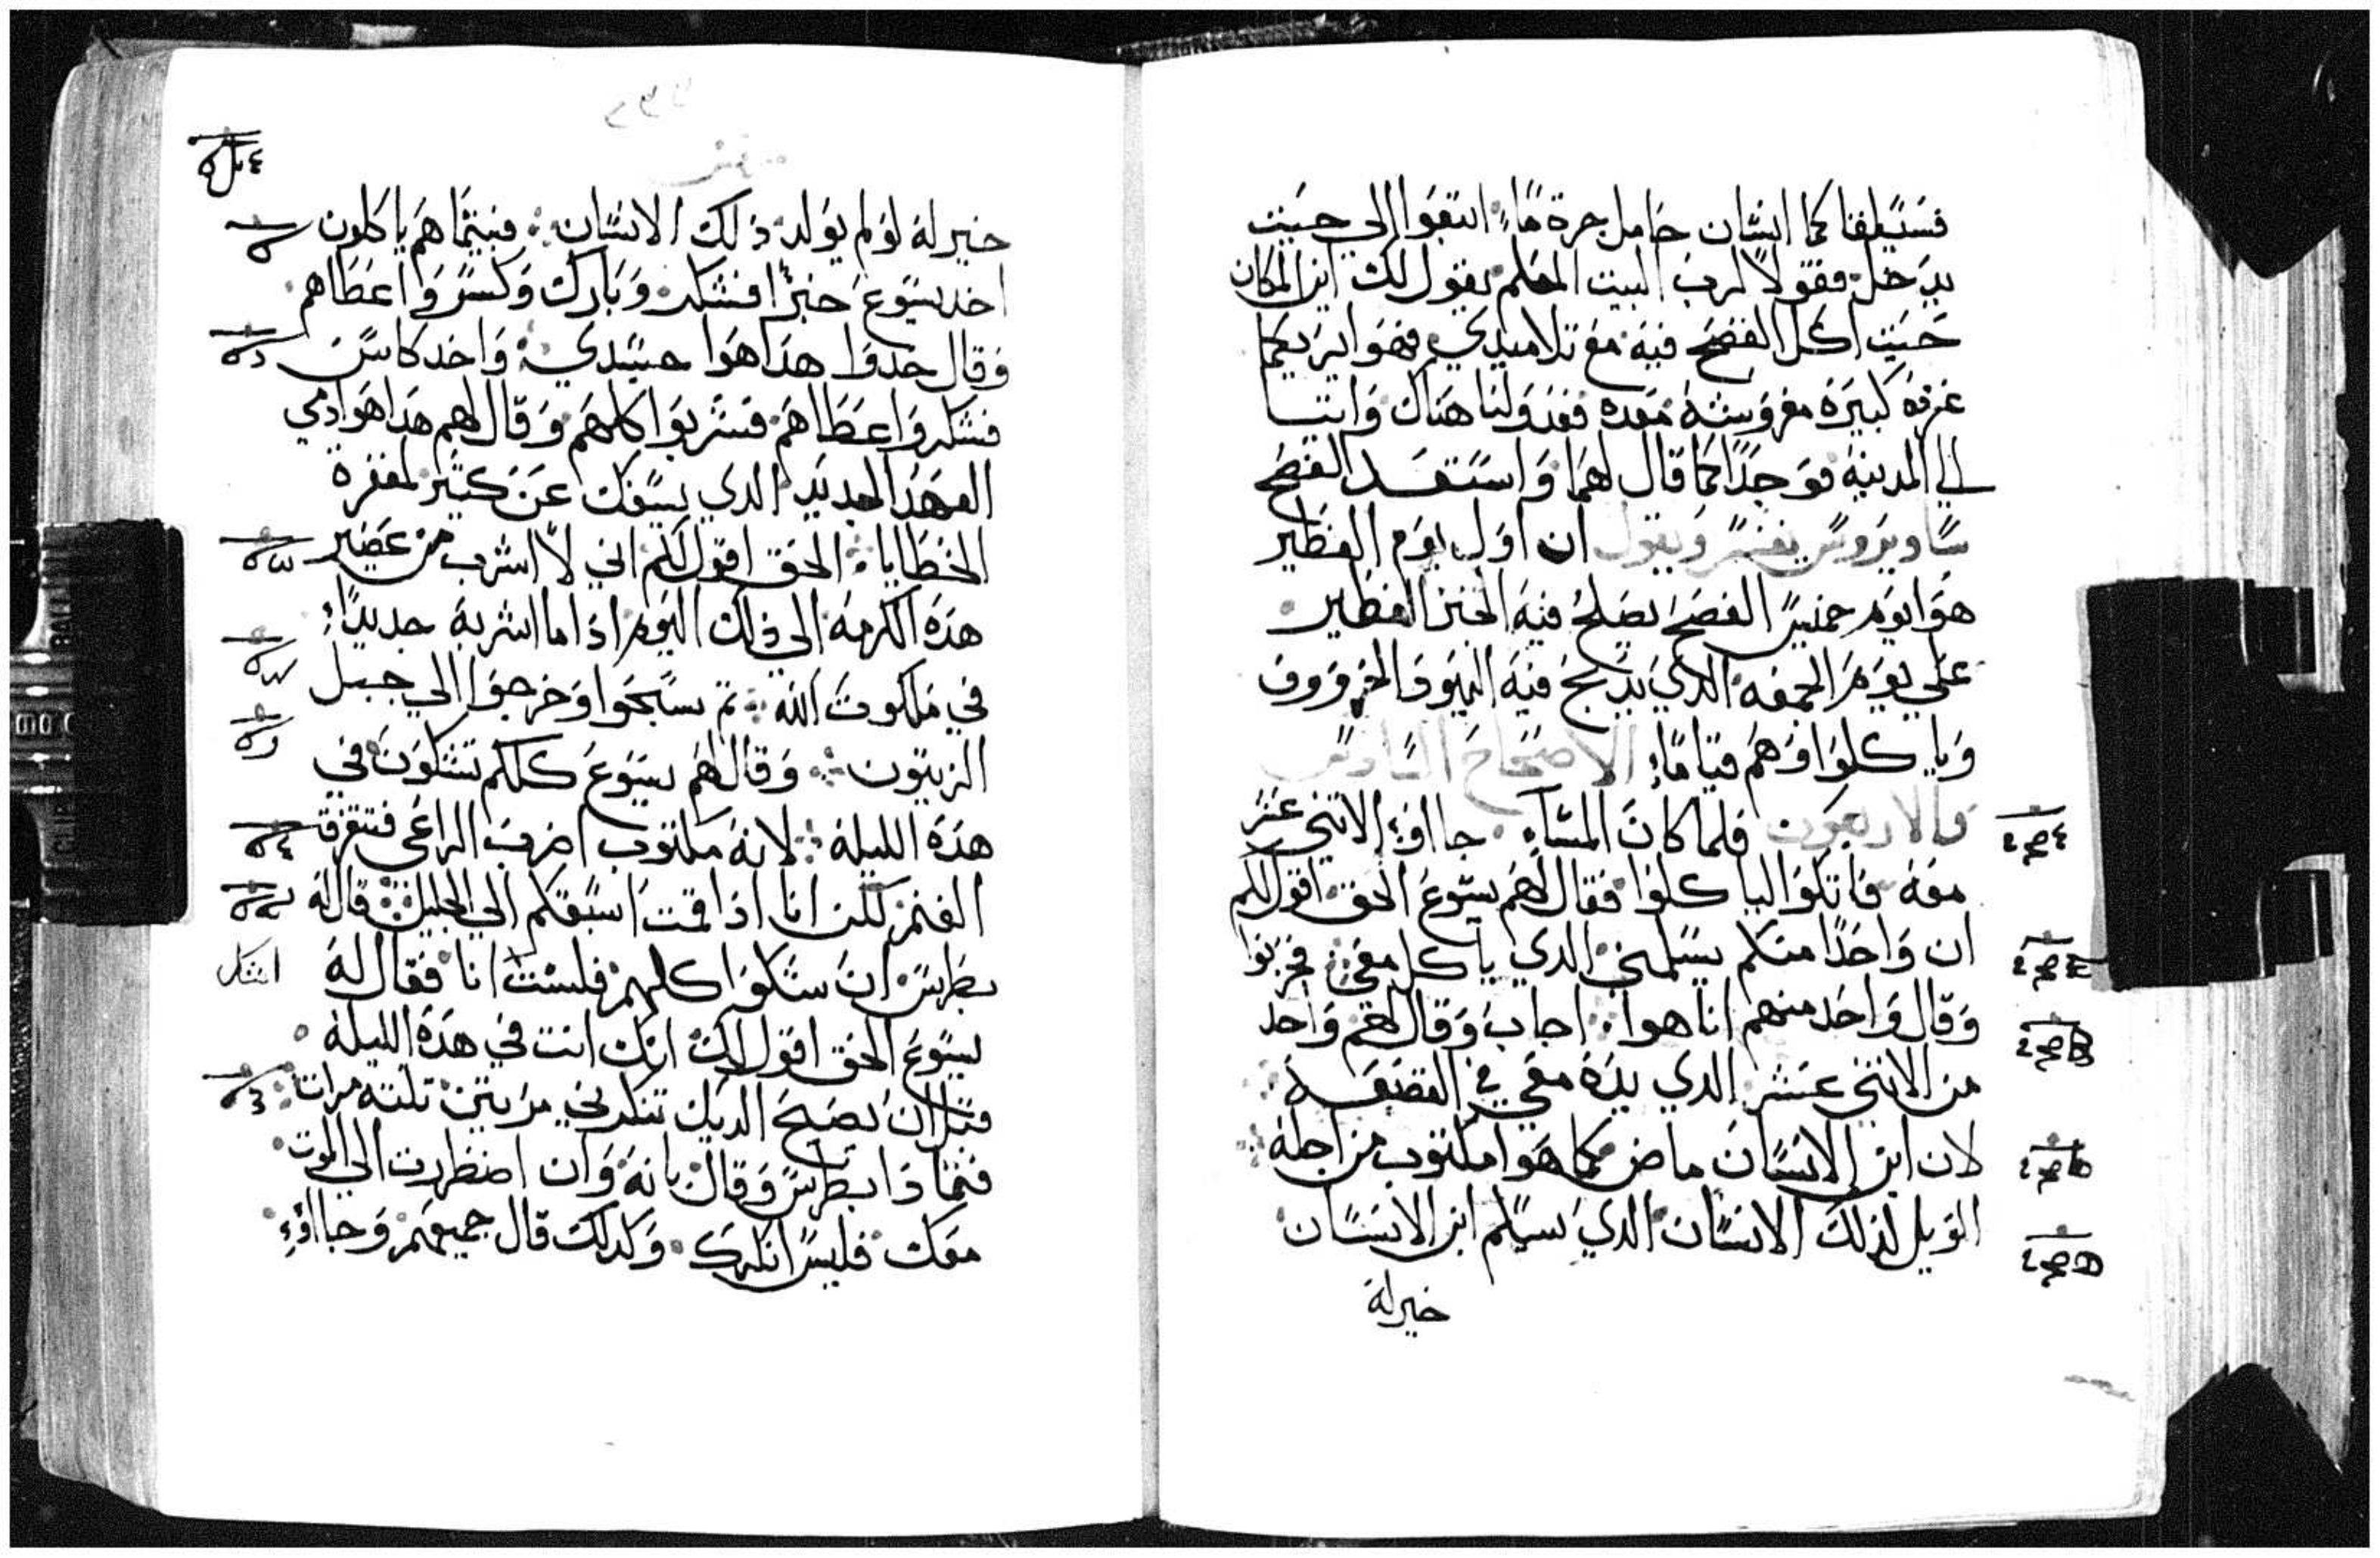 فسيلقاكما انسان حامل جرة ماء اتبعوا الي حيث
يدخل فقولا لرب البيت المعلم يقول لك اين المكان
حيث اكل الفصح فيه مع تلاميدي فهوا يريكما
غرفه كبيرة مفروشه معده فعدوا لنا هناك واتيا
الي المدينة فوجدا كما قال لهما واستعد الفصح
ساويرس يفسر ويقول ان اول يوم الفطير
هوا يوم خميس الفصح يصلح فيه الخبز الفطير
علي يوم الجمعه الدي يدبح فيه اليهود الخروف
وياكلوا وهم قياما الاصحاح السادس
والاربعون فلما كان المساء جااوا الاتني عشر
معه فاتكوا لياكلوا فقال لهم يسوع الحق اقول لكم
ان واحدا منكم يسلمني الدي ياكل معي فحزنوا
وقال واحد منهم انا هوا اجاب وقال لهم واحد
من الاتني عشر الدي يده معي في القصعه
لان ابن الانسان ماض كما هوا مكتوب من اجله
الويل لذلك الانسان الدي يسلم ابن الانسان
خير له
خير له لو لم يولد ذلك الانسان فبينما هم ياكلون
اخد يسوع خبزا فشكر وبارك وكسر واعطاهم
وقال خدوا هدا هوا جسدي واخد كاس
فشكر واعطاهم فشربوا كلهم وقال لهم هدا هوا دمي
العهد الجديد الدي يسفك عن كثير لمغفرة
الخطايا الحق اقول لكم اني لا اشرب من عصير
هده الكرمه الي ذلك اليوم اذا ما اشربه جديدا
في ملكوت الله تم سبحوا وخرجوا الي جبل
الزيتون وقال لهم يسوع كلكم تشكون في
هده الليلة لانه مكتوب اضرب الراعي فتتفرق
الغنم لكن انا اذا قمت اسبقكم الي الجليل قال له
بطرس ان شكوا كلهم فلست انا فقال له
اشك
يسوع الحق اقول لك انك انت في هده الليلة
قبل ان يصيح الديك تنكرني مرتين تلته مرات
فتمادا بطرس وقال بانه وان اضطررت الي الموت
معك فليس انكرك وكدلك قال جميعهم وجااوا